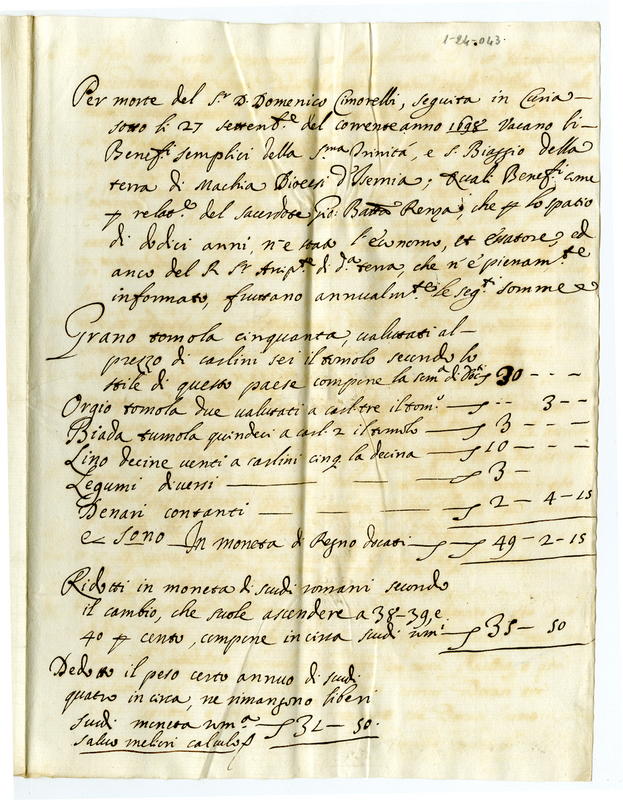 1-24-043.
Per morte del S.r D. Domenico Cimorelli, seguita in Curia
sotto li 27 settemb.e del corrente anno 1698 Vacano li
Benef.i semplici della S.ma Trinità, e S. Biaggio della
terra di Machia Diocesi d'Isernia; Quali Benef.i come
p relat.e del sacerdote Gio: Batta Renza, che p lo spatio
di dodici anni, n'è stato l'economo, et esatore, ed
anco del R. S.r Arcip.te di d.a terra, che n'è pienam.te
informato, fruttano annualm.te le seg.ti somme
Grano tomola cinquanta, valutati al
prezzo di carlini sei il tomolo secondo lo
stile di questo paese compone la som.a di Doc.ti 30 - - -
Orgio tomola due valutati a carl. tre il tom.o - - 3 - -
Biada tumola quindeci a carl. 2 il tumolo 3 - - -
Lino decine venti a carlini cinq. la decina 10 - - -
Legumi diversi 3 -
Denari contanti 2 - 4 - 15
e sono In moneta di Regno docati 49 - 2 - 15
Ridotti in moneta di scudi romani secondo
il cambio, che suole ascendere a 38-39, e
40 p cento, compone in circa scudi rom.i 35 - 50
Dedotto il peso certo annuo di scudi
quatro in circa, ne rimangono liberi
scudi moneta rom.a 31 - 50.
salvo meliori calculo